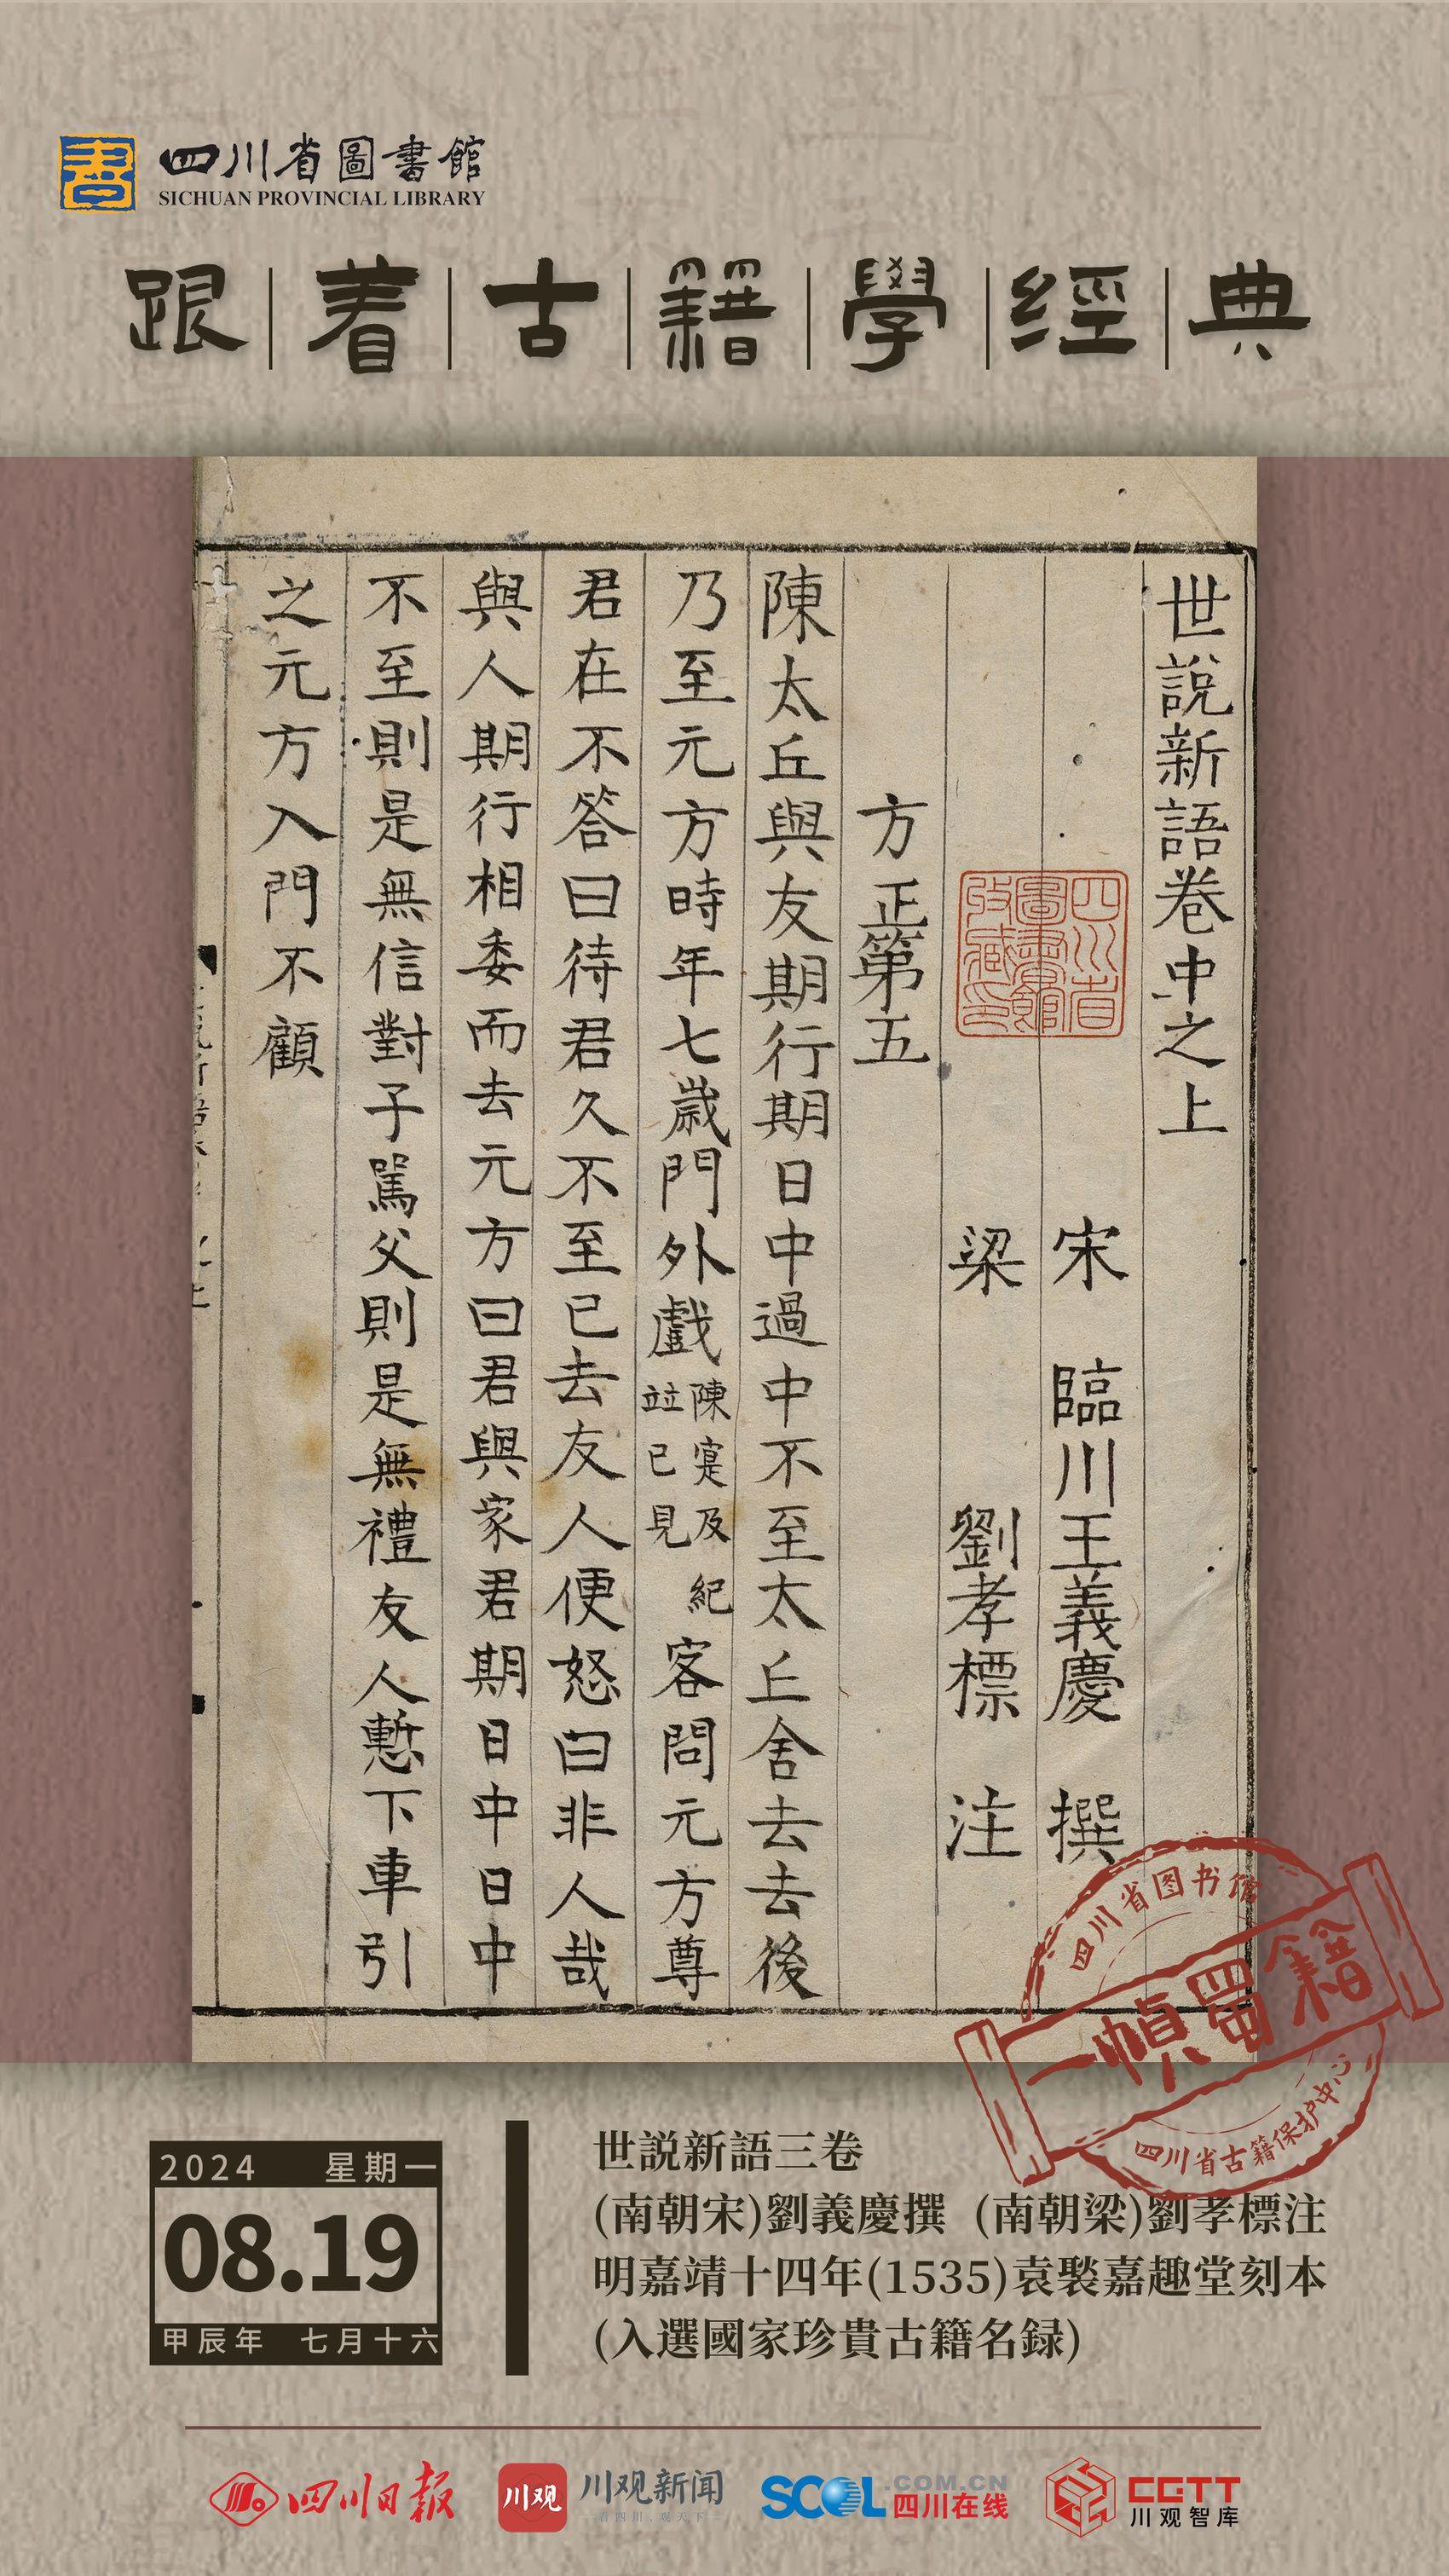 四川省圖書館
SICHUAN PROVINCIAL LIBRARY
跟着古籍學經典
世說新語卷中之上
宋 臨川王義慶 撰
梁 劉孝標 注
四川省圖書館收藏印
方正第五
陳太丘與友期行期日中過中不至太丘舍去去後
乃至元方時年七歲門外戲陳寔及紀竝已見客問元方尊
君在不答曰待君久不至已去友人便怒曰非人哉
與人期行相委而去元方曰君與家君期日中日中
不至則是無信對子罵父則是無禮友人慙下車引
之元方入門不顧
四川省图书馆
一幀蜀籍
四川省古籍保护中心
2024 星期一
08.19
甲辰年 七月十六
世説新語三卷
(南朝宋)劉義慶撰 (南朝梁)劉孝標注
明嘉靖十四年(1535)袁褧嘉趣堂刻本
(入選國家珍貴古籍名録)
四川日報
川观
川观新闻
看四川,观天下
SCOL.COM.CN
四川在线
CGTT
川观智库